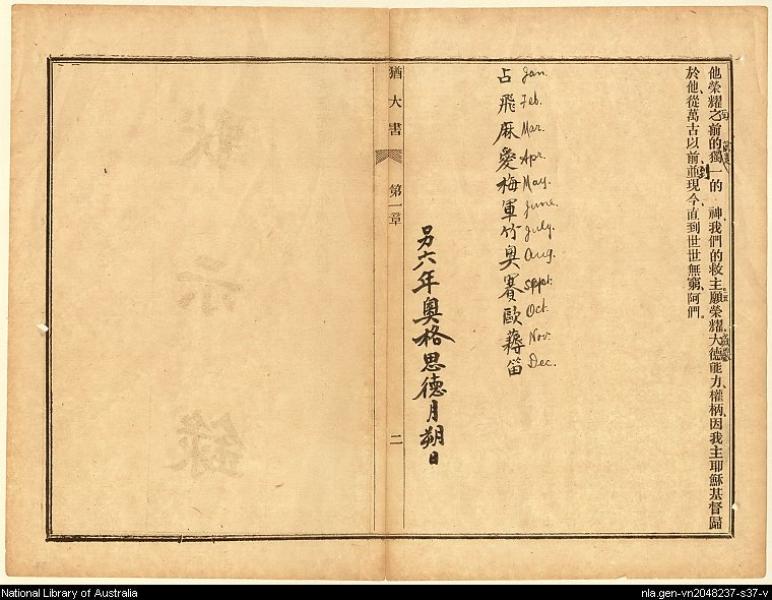 他榮耀之前的獨一的 神我們的救主願榮耀大德能力權柄因我主耶穌基督歸
於他從萬古以前並到現今直到世世無窮阿們
Jan.
Feb.
Mar.
Apr.
May.
June.
July.
Aug.
Sept.
Oct.
Nov.
Dec.
占飛麻愛梅軍竹奧賽歐薅笛
另六年奧格思德月朔日
猶大書 第一章 二
獣示錄
National Library of Australia
nla.gen-vn2048237-s37-v